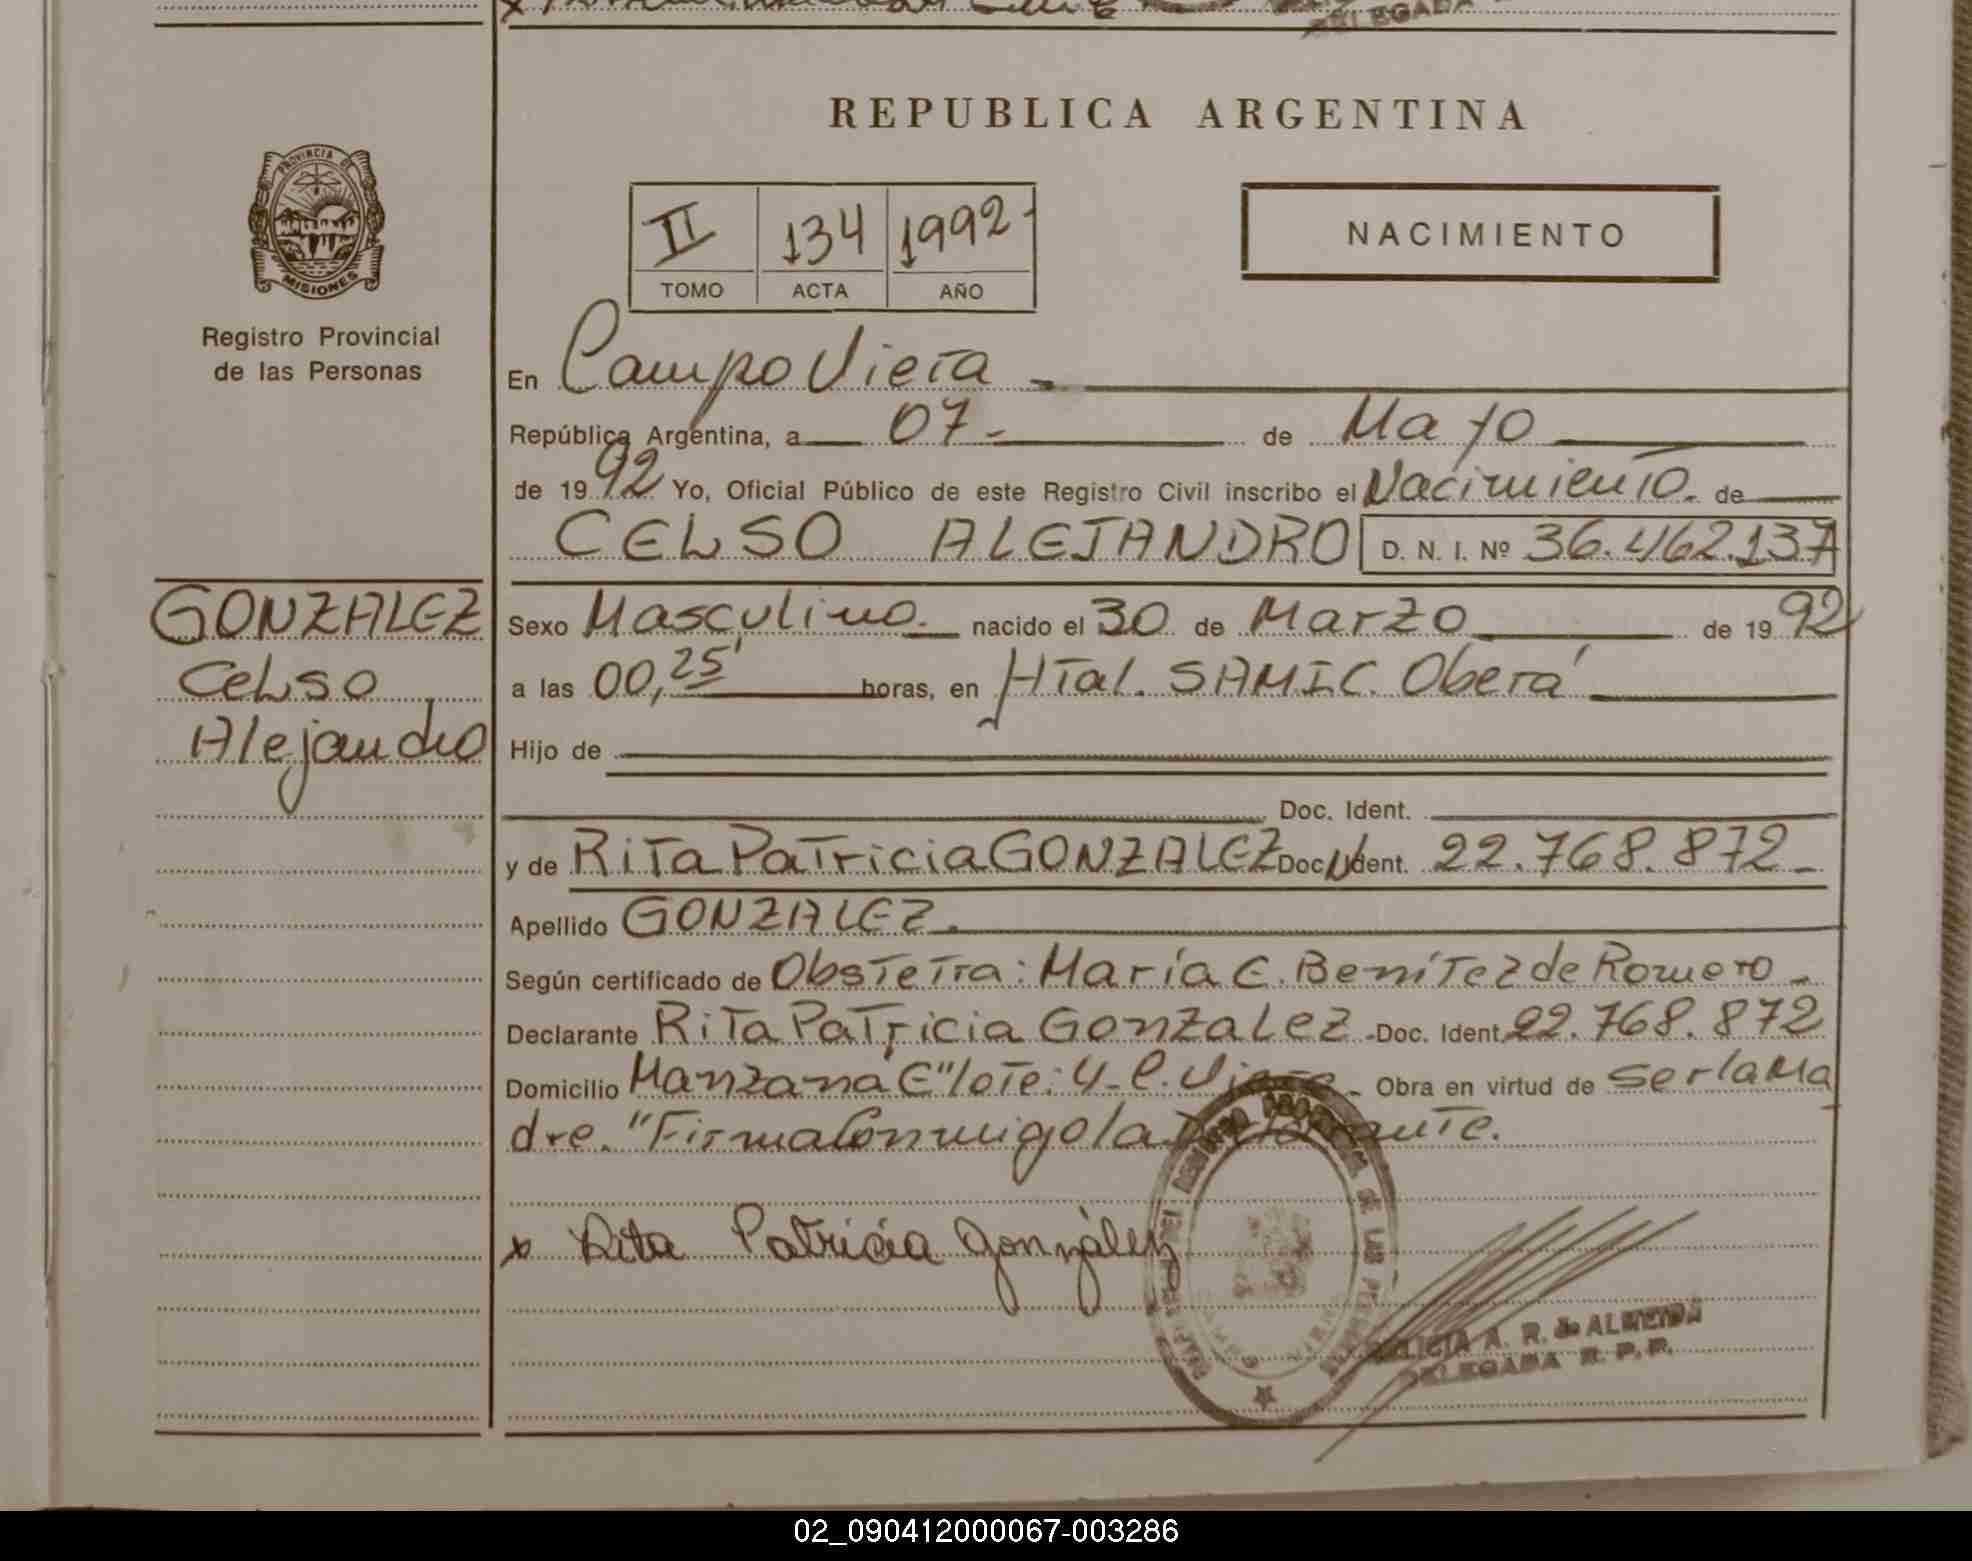 DELEGADA
REPUBLICA ARGENTINA
PROVINCIA DE
MISIONES
Registro Provincial
de las Personas
II 134 1992
TOMO ACTA AÑO
NACIMIENTO
En Campo Viera
República Argentina, a 07 de Mayo
de 1992 Yo, Oficial Público de este Registro Civil inscribo el Nacimiento. de
CELSO ALEJANDRO D. N. I. Nº 36.462.137
GONZALEZ
Celso
Alejandro
Sexo Masculino. nacido el 30 de Marzo de 1992
a las 00,25' horas, en Htal. SAMIC. Oberá
Hijo de
Doc. Ident.
y de Rita Patricia GONZALEZ Doc. Ident. 22.768.872
Apellido GONZALEZ.
Según certificado de Obstetra: María E. Benítez de Romero
Declarante Rita Patricia Gonzalez Doc. Ident. 22.768.872
Domicilio Manzana "E" lote: 4 - C. Viera - Obra en virtud de ser la Ma
dre. "Firma Conmigo la Declarante.
x Rita Patricia González
A. R. de ALMEIDA
DELEGADA R. P. P.
02_090412000067-003286